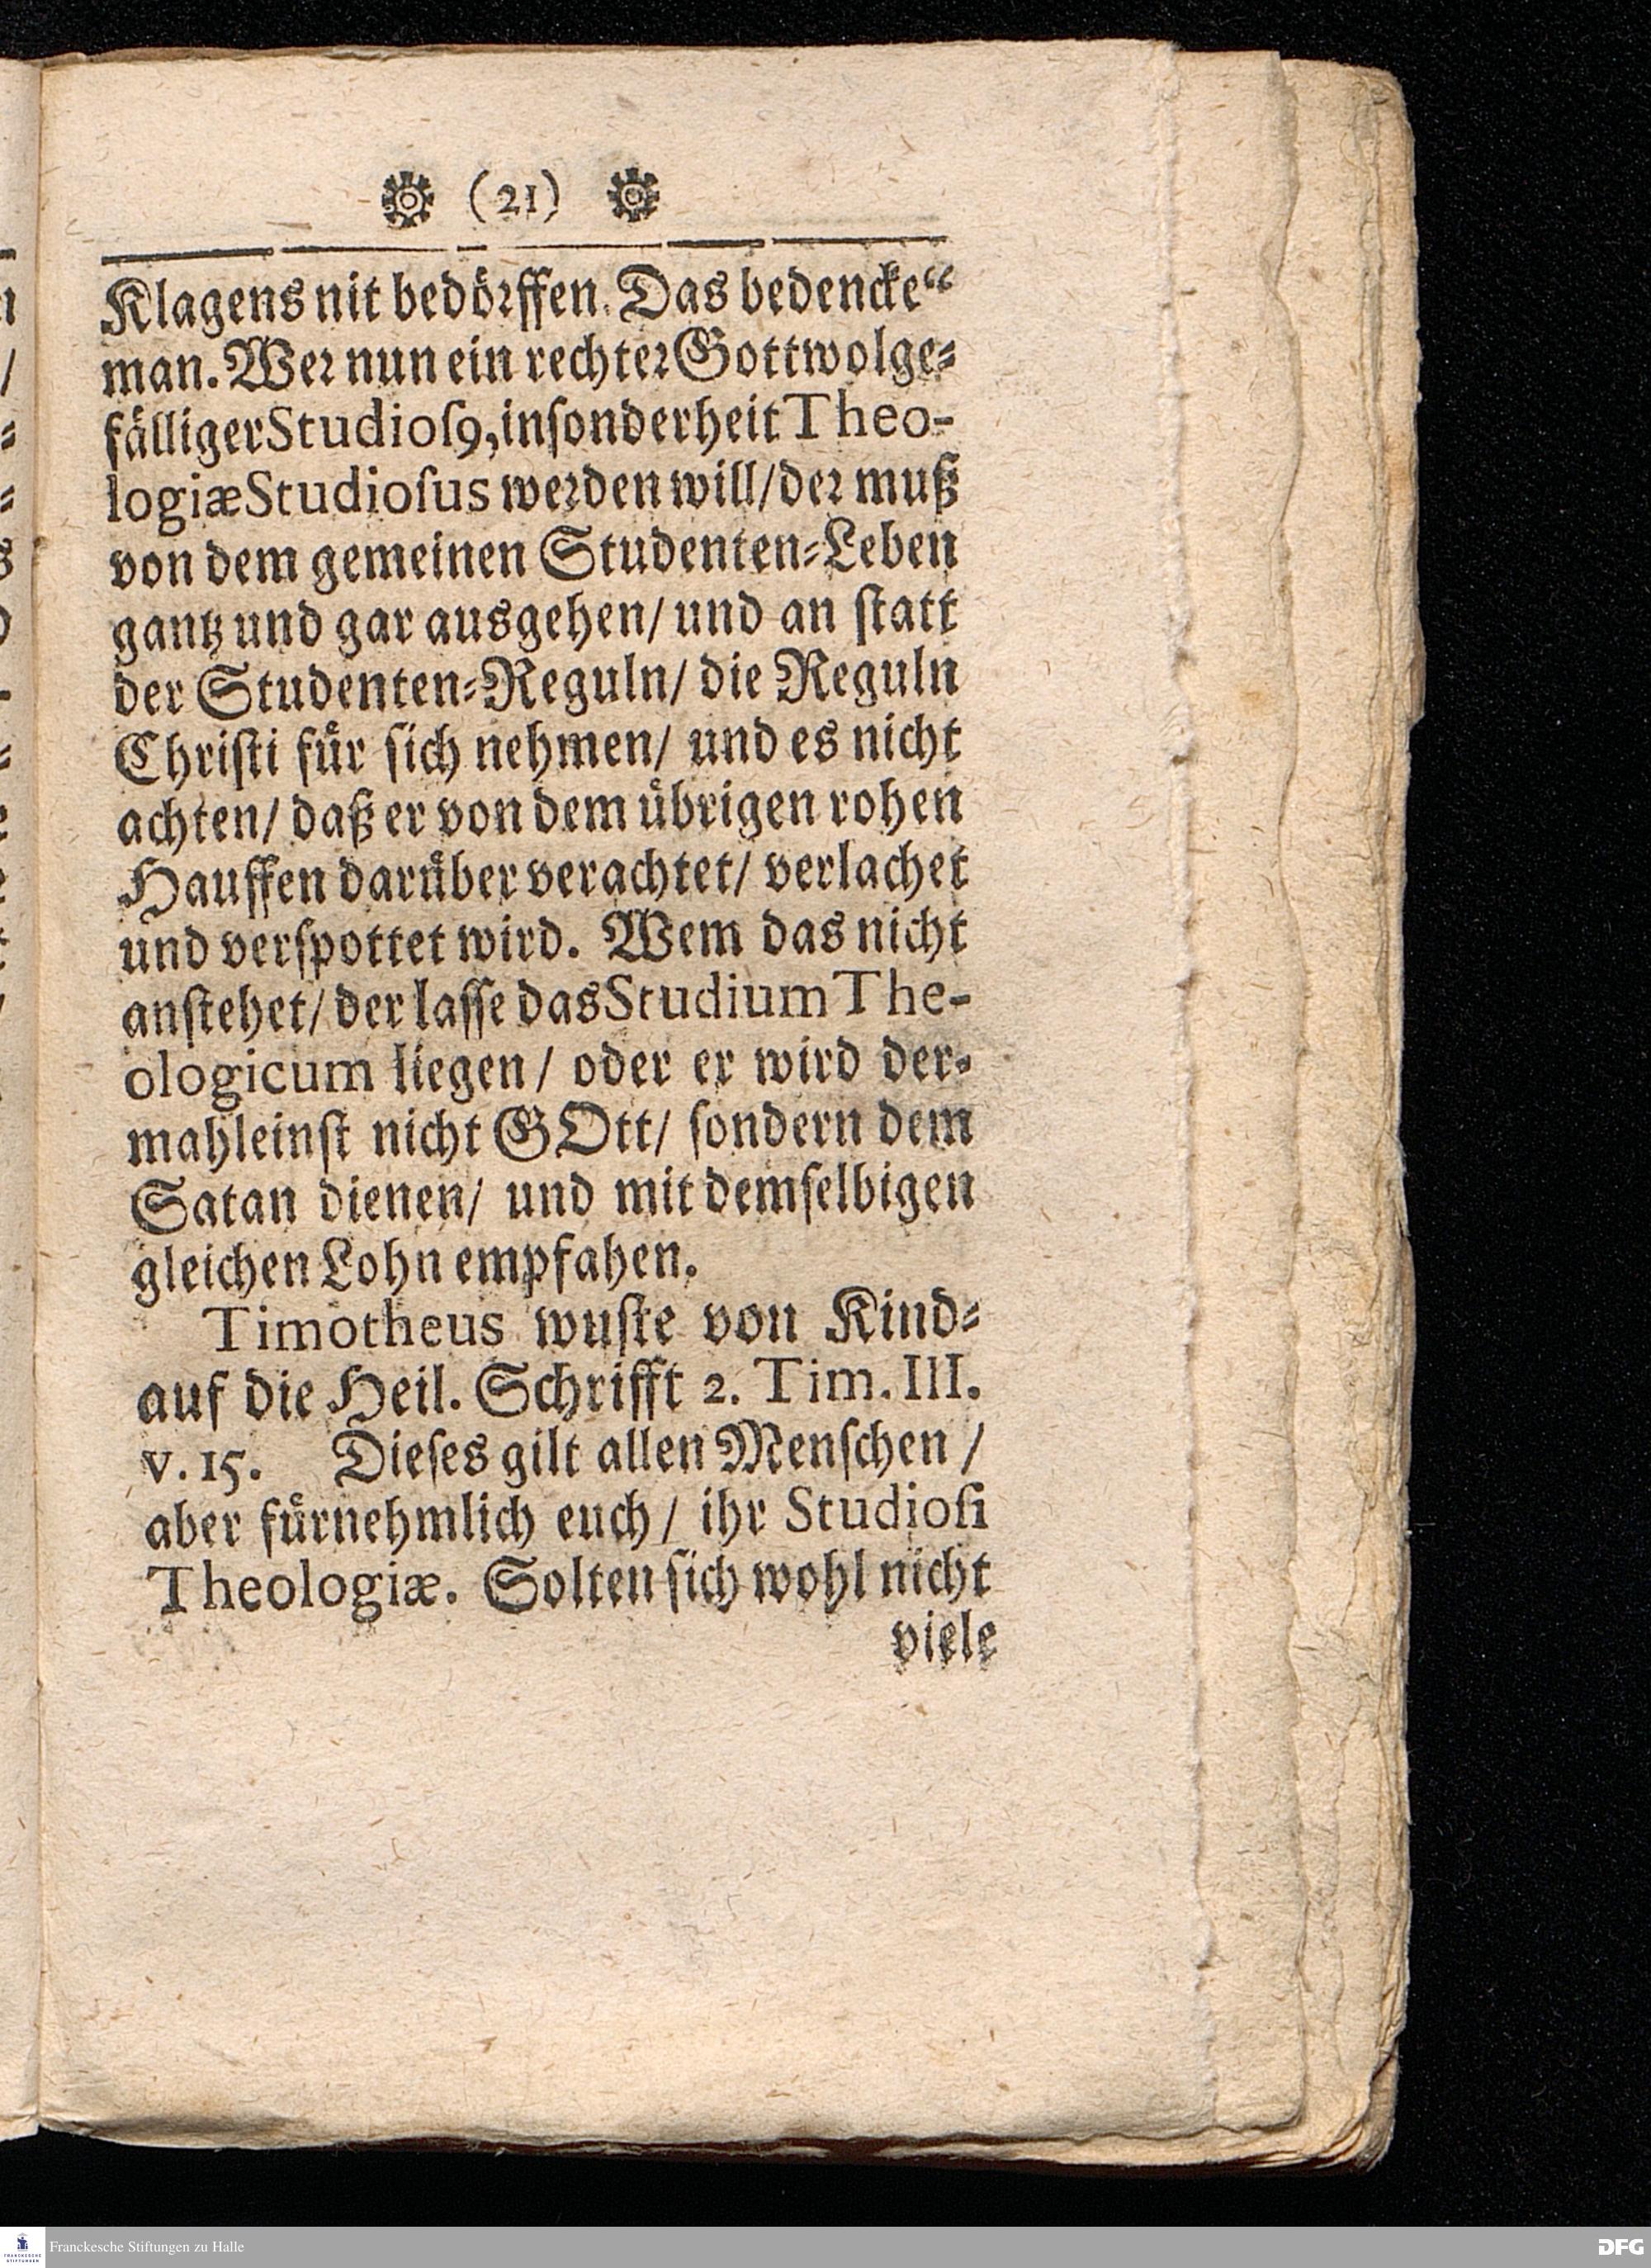 (21)
Klagens nit bedörffen. Das bedencke“
man. Wer nun ein rechter Gottwolge-
fälliger Studioſꝰ, inſonderheit Theo-
logiæ Studioſus werden will/ der muß
von dem gemeinen Studenten-Leben
gantz und gar ausgehen/ und an ſtatt
der Studenten-Reguln/ die Reguln
Chriſti für ſich nehmen/ und es nicht
achten/ daß er von dem übrigen rohen
Hauffen darüber verachtet/ verlachet
und verſpottet wird. Wem das nicht
anſtehet/ der laſſe das Studium The-
ologicum liegen/ oder er wird der-
mahleinſt nicht GOtt/ ſondern dem
Satan dienen/ und mit demſelbigen
gleichen Lohn empfahen.
Timotheus wuſte von Kind-
auf die Heil. Schrifft 2. Tim. III.
v. 15. Dieſes gilt allen Menſchen/
aber fürnehmlich euch/ ihr Studioſi
Theologiæ. Solten ſich wohl nicht
viele
FRANCKESCHE STIFTUNGEN
Franckesche Stiftungen zu Halle
DFG